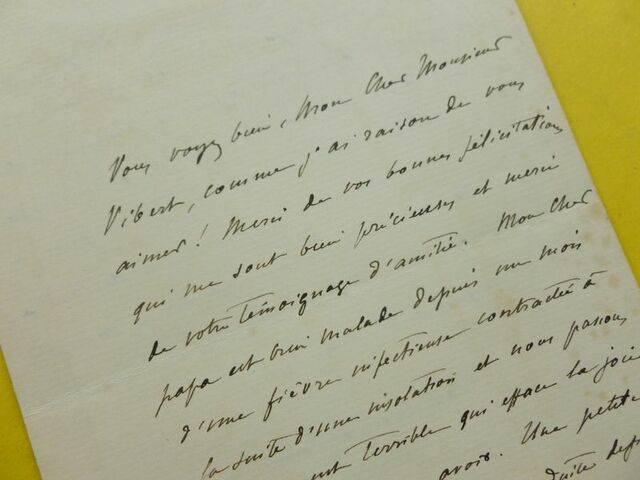 Vous voyez bien, Mon Cher Monsieur
Vibert, comme j'ai raison de vous
aimer! Merci de vos bonnes félicitations
qui me sont bien précieuses et merci
de votre témoignage d'amitié. Mon Cher
papa est bien malade depuis un mois
d'une fièvre infectieuse contractée à
la suite d'une insolation et nous passons
terrible qui efface la joie
avoir. Une petite